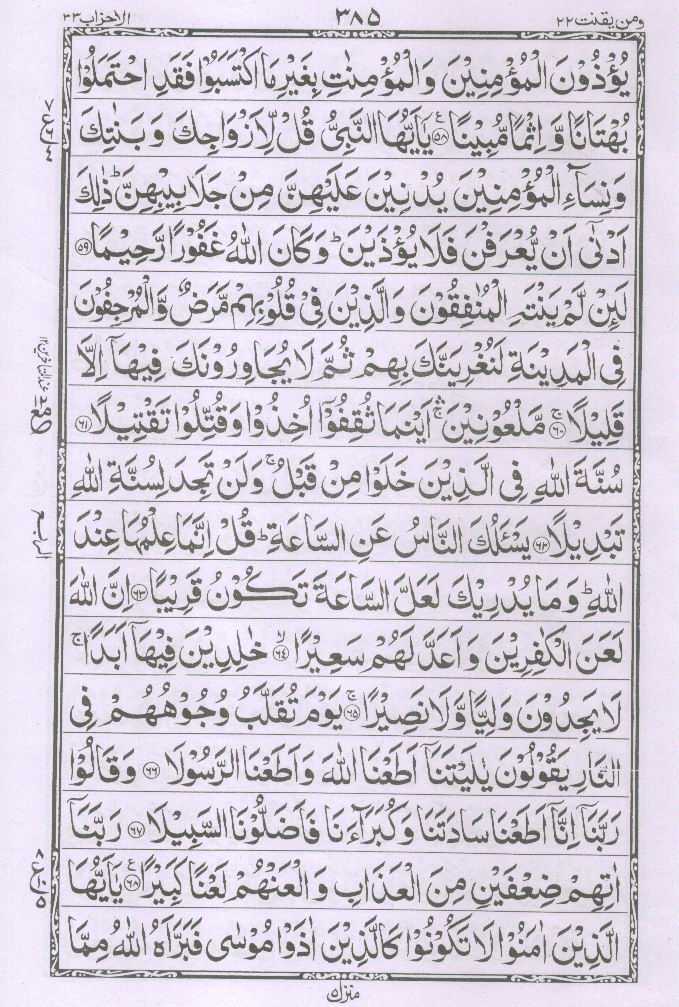 ومن يقنت ٢٢
٣٨٥
الاحزاب ٣٣
يُؤْذُوْنَ الْمُؤْمِنِيْنَ وَالْمُؤْمِنٰتِ بِغَيْرِ مَا اكْتَسَبُوْا فَقَدِ احْتَمَلُوْا
بُهْتَانًا وَّاِثْمًا مُّبِيْنًا ﴿۵۸﴾ ع يٰۤاَيُّهَا النَّبِيُّ قُلْ لِّاَزْوَاجِكَ وَبَنٰتِكَ
وَنِسَآءِ الْمُؤْمِنِيْنَ يُدْنِيْنَ عَلَيْهِنَّ مِنْ جَلَابِيْبِهِنَّ ؕ ذٰلِكَ
اَدْنٰۤى اَنْ يُّعْرَفْنَ فَلَا يُؤْذَيْنَ ؕ وَكَانَ اللّٰهُ غَفُوْرًا رَّحِيْمًا ﴿۵۹﴾
لَئِنْ لَّمْ يَنْتَهِ الْمُنٰفِقُوْنَ وَالَّذِيْنَ فِيْ قُلُوْبِهِمْ مَّرَضٌ وَّالْمُرْجِفُوْنَ
فِي الْمَدِيْنَةِ لَنُغْرِيَنَّكَ بِهِمْ ثُمَّ لَا يُجَاوِرُوْنَكَ فِيْهَاۤ اِلَّا
قَلِيْلًا ﴿۶۰﴾ ج مَّلْعُوْنِيْنَ ۛۚ اَيْنَمَا ثُقِفُوْۤا اُخِذُوْا وَقُتِّلُوْا تَقْتِيْلًا ﴿۶۱﴾
سُنَّةَ اللّٰهِ فِي الَّذِيْنَ خَلَوْا مِنْ قَبْلُ ۚ وَلَنْ تَجِدَ لِسُنَّةِ اللّٰهِ
تَبْدِيْلًا ﴿۶۲﴾ يَسْـَٔلُكَ النَّاسُ عَنِ السَّاعَةِ ؕ قُلْ اِنَّمَا عِلْمُهَا عِنْدَ
اللّٰهِ ؕ وَمَا يُدْرِيْكَ لَعَلَّ السَّاعَةَ تَكُوْنُ قَرِيْبًا ﴿۶۳﴾ اِنَّ اللّٰهَ
لَعَنَ الْكٰفِرِيْنَ وَاَعَدَّ لَهُمْ سَعِيْرًا ﴿۶۴﴾ لا خٰلِدِيْنَ فِيْهَاۤ اَبَدًا ۚ
لَا يَجِدُوْنَ وَلِيًّا وَّلَا نَصِيْرًا ﴿۶۵﴾ ج يَوْمَ تُقَلَّبُ وُجُوْهُهُمْ فِي
النَّارِ يَقُوْلُوْنَ يٰلَيْتَنَاۤ اَطَعْنَا اللّٰهَ وَاَطَعْنَا الرَّسُوْلَا ﴿۶۶﴾ وَقَالُوْا
رَبَّنَاۤ اِنَّاۤ اَطَعْنَا سَادَتَنَا وَكُبَرَآءَنَا فَاَضَلُّوْنَا السَّبِيْلَا ﴿۶۷﴾ رَبَّنَاۤ
اٰتِهِمْ ضِعْفَيْنِ مِنَ الْعَذَابِ وَالْعَنْهُمْ لَعْنًا كَبِيْرًا ﴿۶۸﴾ ع يٰۤاَيُّهَا
الَّذِيْنَ اٰمَنُوْا لَا تَكُوْنُوْا كَالَّذِيْنَ اٰذَوْا مُوْسٰى فَبَرَّاَهُ اللّٰهُ مِمَّا
الربع
منزل ۵